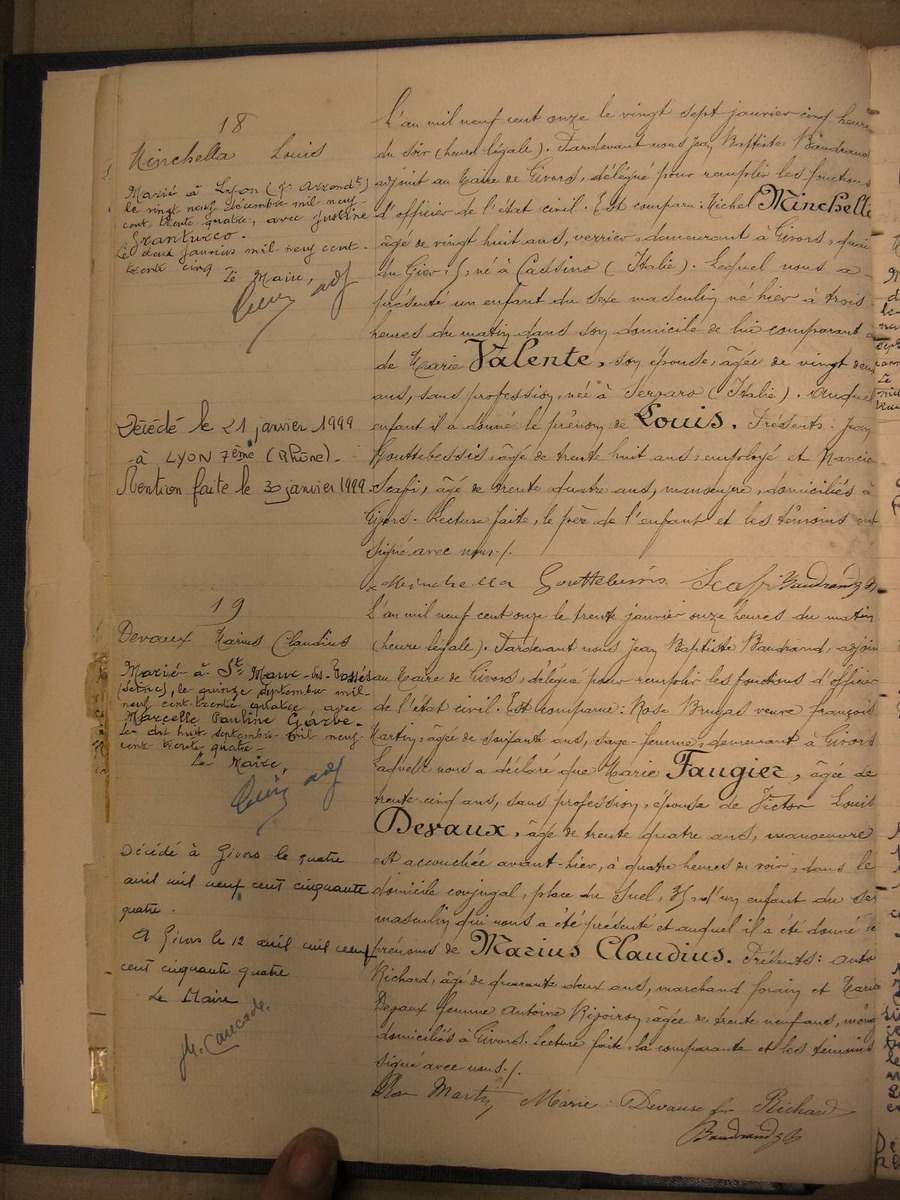 18
Minchella Louis
Marié à Lyon (7e Arrondt)
le vingt neuf décembre mil neuf
cent trente quatre, avec Justine
Grantureo.
Le deux janvier mil neuf cent
trente cinq
Le Maire,
adj
Décédé le 21 janvier 1999
à LYON 7ème (Rhône)-
Mention faite le 30 janvier 1999.
L'an mil neuf cent onze le vingt sept janvier cinq heures
du soir (heure légale). Pardevant nous Jean Baptiste Baudrand
adjoint au Maire de Givors, délégué pour remplir les fonctions
d'officier de l'état civil. Est comparu: Michel Minchella
âgé de vingt huit ans, verrier, demeurant à Givors, quai
du Gier, 5, né à Cassino (Italie). Lequel nous a
présenté un enfant du sexe masculin né hier à trois
heures du matin dans son domicile de lui comparant
de Marie Valente, son épouse, âgée de vingt deux
ans, sans profession, née à (Italie). Auquel
enfant il a donné le prénom de Louis. Présents: Jean
Gouttebessis, âgé de trente huit ans, employé et
Scaffi, âgé de trente quatre ans, manoeuvre, domiciliés à
Givors. Lecture faite, le père de l'enfant et les témoins ont
signé avec nous./.
Minchella Gouttebessis Scaffi Baudrand
19
Devaux Marius Claudius
Marié à St Maur-des-Fossés
(Seine), le quinze septembre mil
neuf cent trente quatre, avec
Marcelle Pauline
Le dix huit septembre mil neuf
cent trente quatre-
Le Maire,
adj
Décédé à Givors le quatre
avril mil neuf cent cinquante
quatre.
A Givors le 12 avril mil neuf
cent cinquante quatre
Le Maire
L'an mil neuf cent onze le trente janvier onze heures du matin
(heure légale). Pardevant nous Jean Baptiste Baudrand, adjoin
au Maire de Givors, délégué pour remplir les fonctions d'officier
de l'état civil. Est comparue: Rose Brugas veuve françois
Martin, âgée de soixante ans, sage-femme, demeurant à Givors
Laquelle nous a déclaré que Marie Faugier, âgée de
trente cinq ans, sans profession, épouse de Victor Louis
Devaux, âgé de trente quatre ans, manoeuvre
est accouchée avant-hier, à quatre heures du soir, dans le
domicile conjugal, place du Suel, 35, d'un enfant du sexe
masculin qui nous a été présenté et auquel il a été donné le
prénoms de Marius Claudius. Présents:
Richard, âgé de quarante deux ans, marchand forain et Marie
Devaux femme Antoine âgée de trente neuf ans,
domiciliés à Givors. Lecture faite la comparante et les témoins
signé avec nous./.
Martin Marie Devaux fe Richard
Baudrand